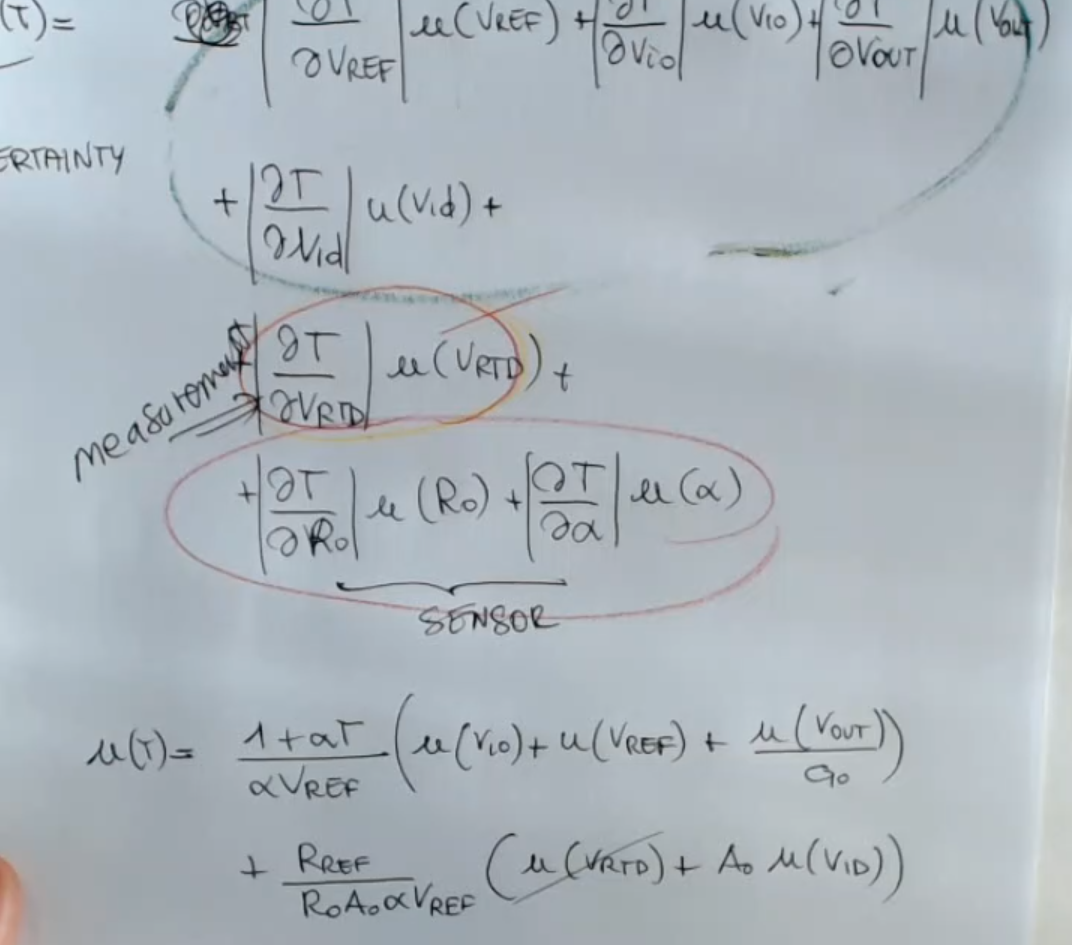 (T)= | ∂T/∂VREF | u(VREF) + | ∂T/∂Vio | u(Vio) + | ∂T/∂VOUT | u(VOUT)
ERTAINTY
+ | ∂T/∂Vid | u(Vid) +
measurement | ∂T/∂VRTD | u(VRTD) +
+ | ∂T/∂R0 | u(R0) + | ∂T/∂α | u(α)
SENSOR
u(T)= (1+αT)/(αVREF) (u(Vio) + u(VREF) + u(VOUT)/a0)
+ RREF/(R0A0αVREF) (u(VRTD) + A0 u(VID))